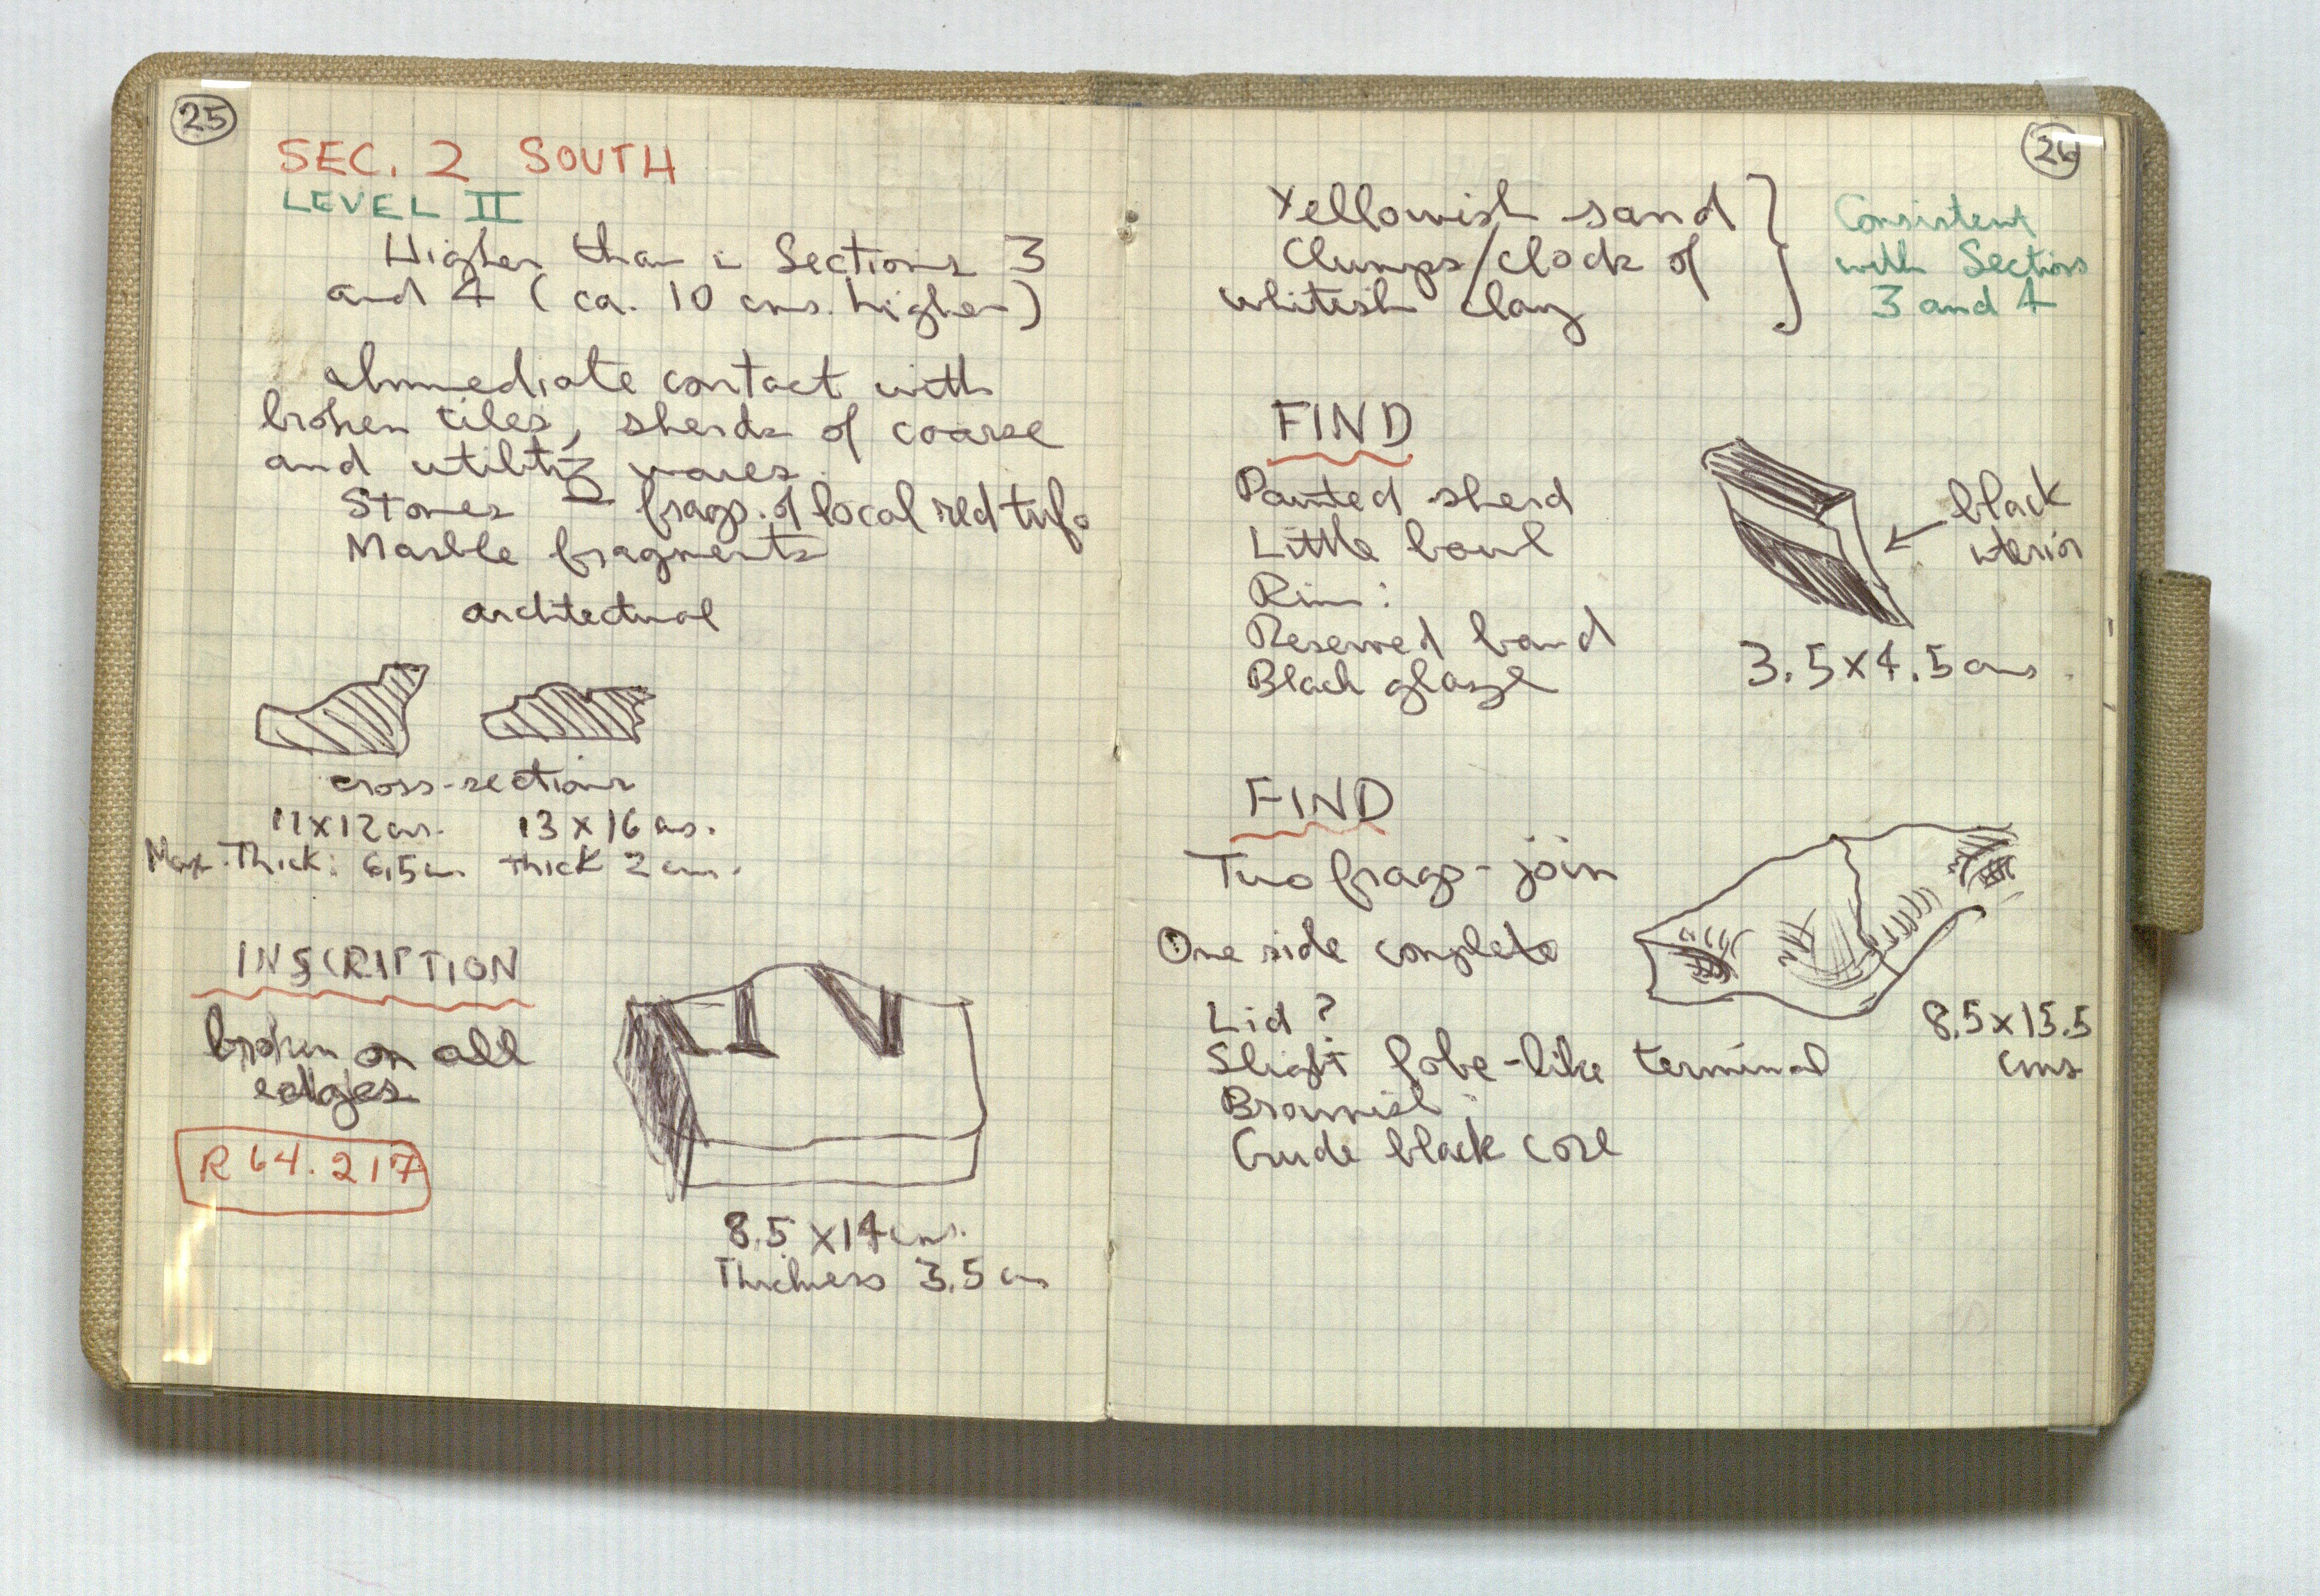 25
SEC. 2 SOUTH
LEVEL II
Higher than in Sections 3
and 4 (ca. 10 cms. higher)
Immediate contact with
broken tiles, sherds of coarse
and utility wares.
Stones – frags. of local red tufo
Marble fragments
architectural
cross-sections
11x12 cms. 13 x 16 cms.
Max. Thick: 6,5 cm thick 2 cm.
INSCRIPTION
broken on all
edges
IV
R 64.217
8.5 x 14 cms.
Thickness 3.5 cm
26
Yellowish sand
Clumps/clods of
whitish clay
Consistent
with Sections
3 and 4
FIND
Painted sherd
Little bowl
Rim:
Reserved band
Black glaze
black
interior
3.5 x 4.5 cms.
FIND
Two frags - join
One side complete
Lid?
Slight lobe-like terminal
Brownish;
Crude black core
8.5 x 15.5
cms